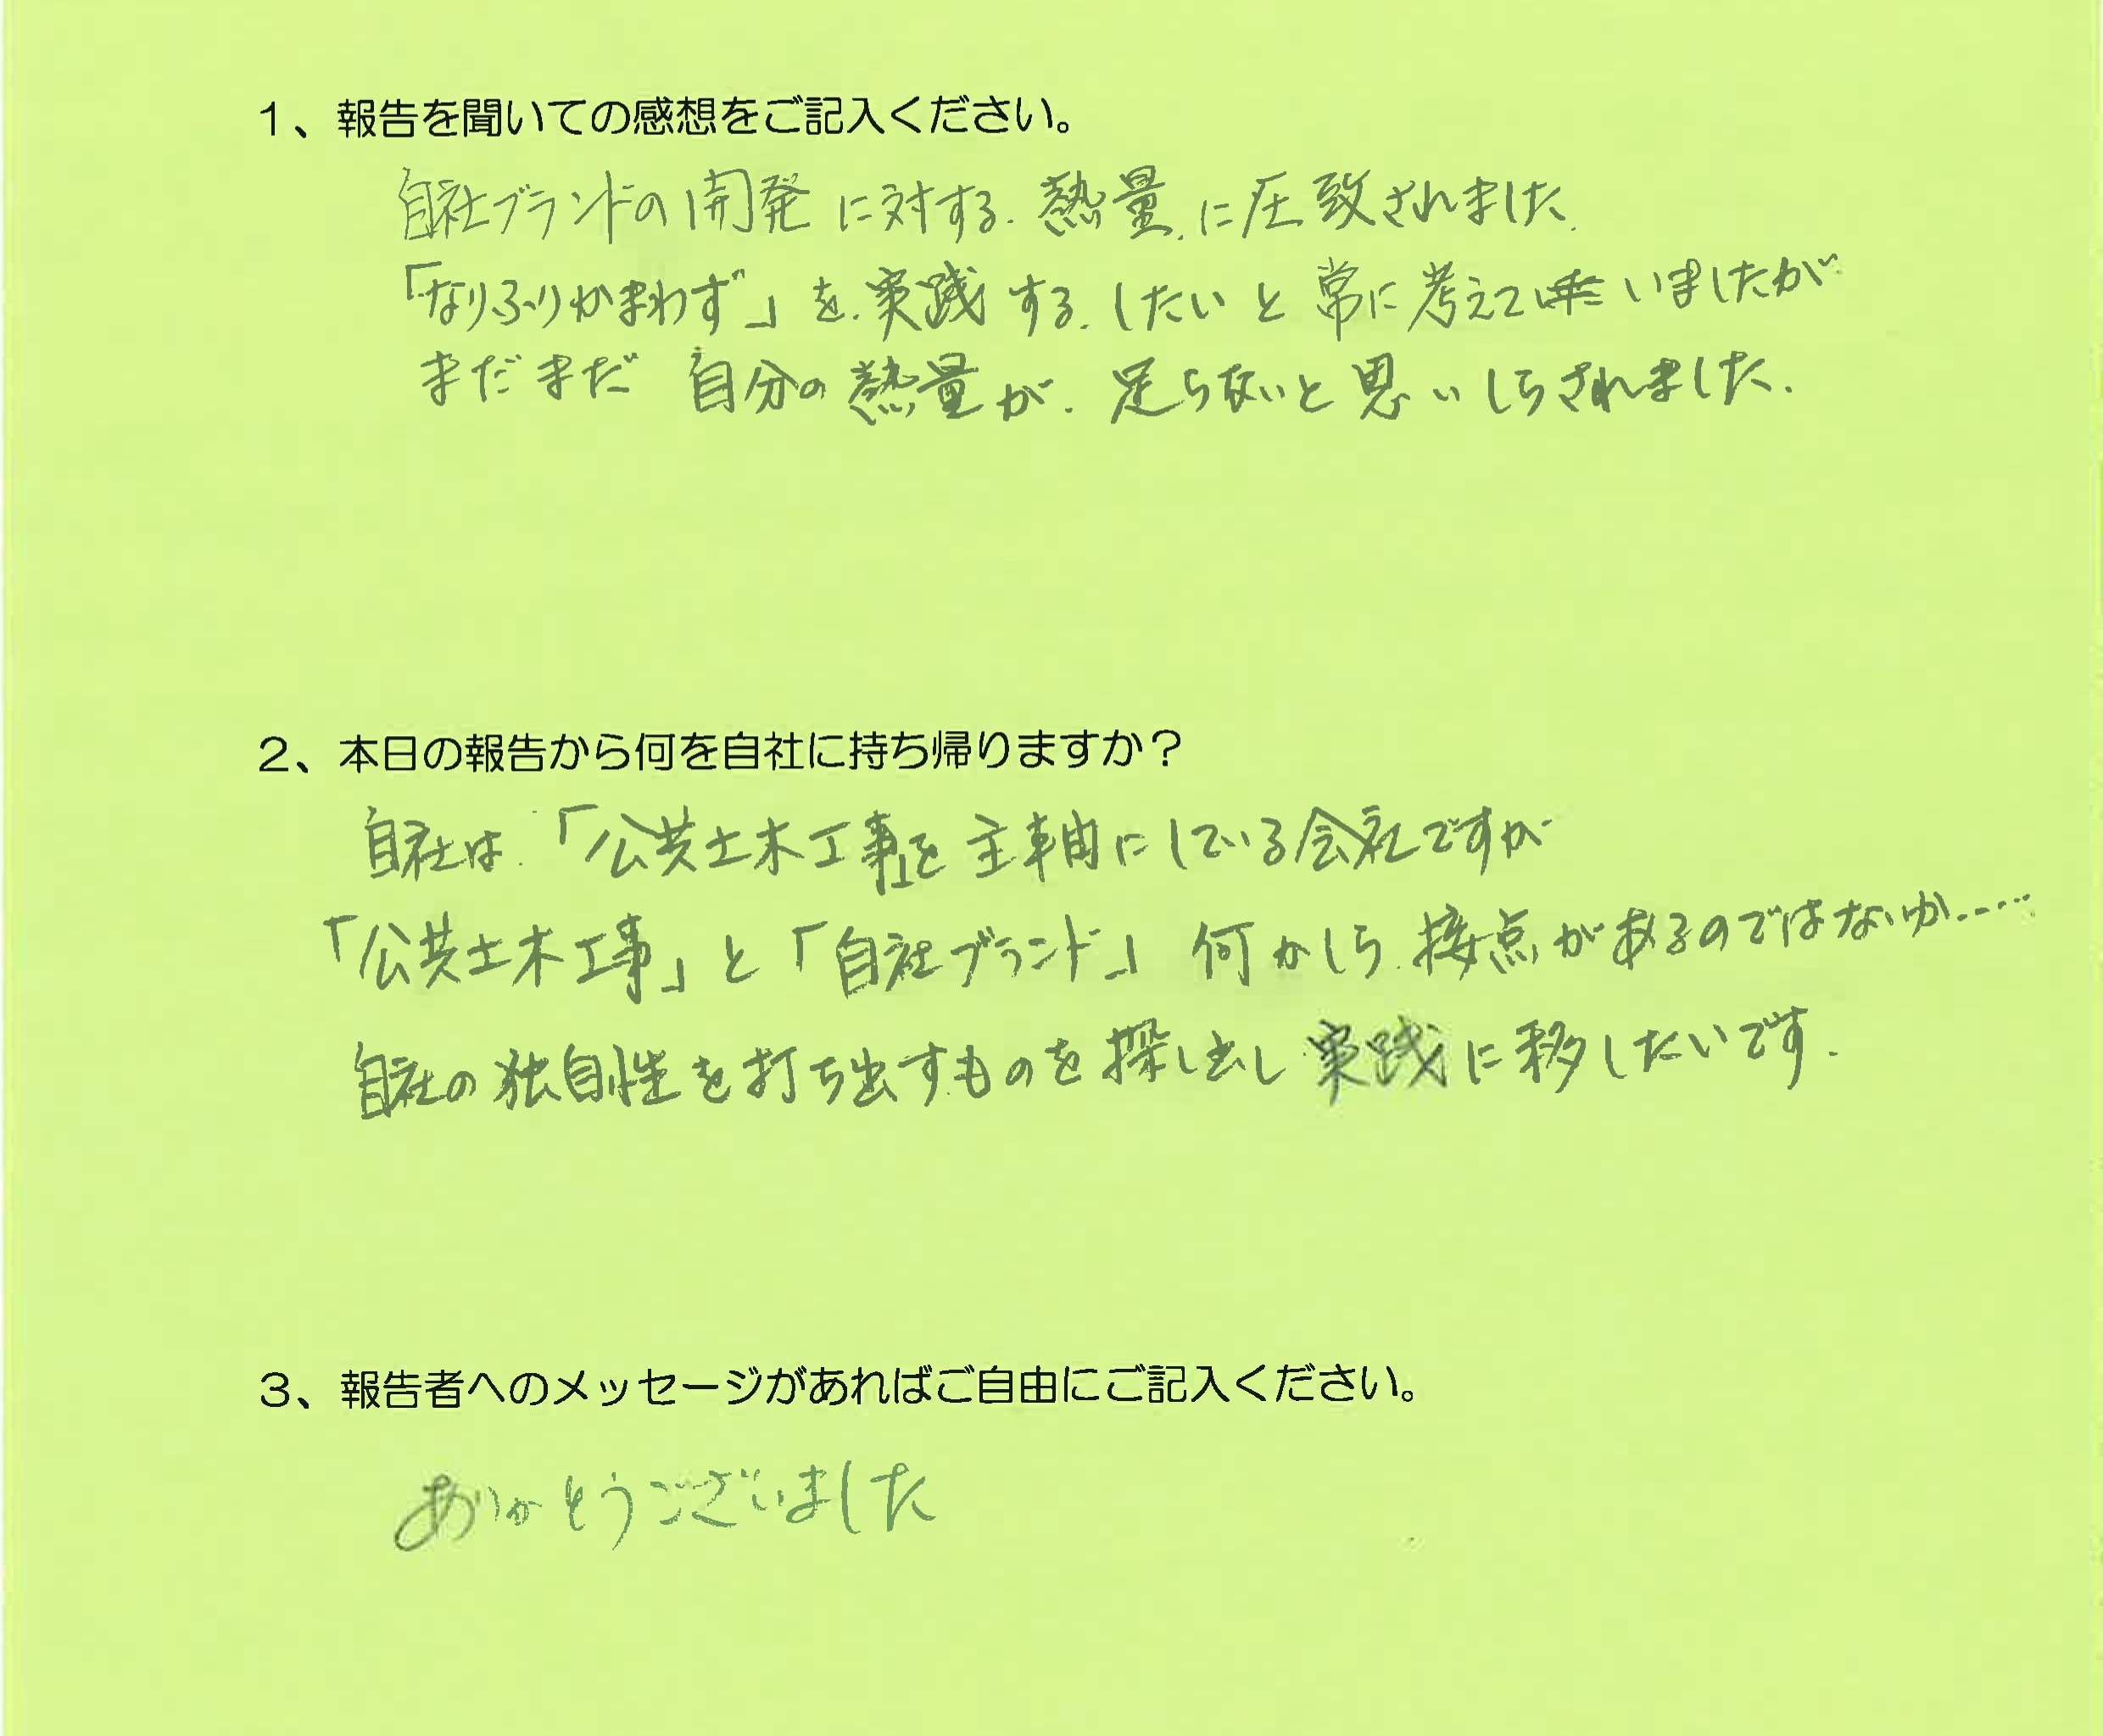 1、報告を聞いての感想をご記入ください。
自社ブランドの開発に対する.熱量.に圧致されました.
「なりふりかまわず」を.実践する.したいと常に考えていましたが
まだまだ 自分の熱量が.足らないと思いしらされました.
2、本日の報告から何を自社に持ち帰りますか？
自社は.「公共土木工事」を主軸にしている会社ですが
「公共土木工事」と「自社ブランド」何かしら.接点があるのではないか.....
自社の独自性を打ち出すものを探し出し実践に移したいです.
3、報告者へのメッセージがあればご自由にご記入ください。
ありがとうございました